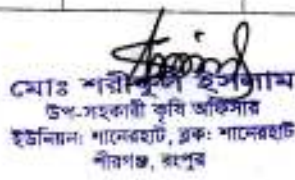 মোঃ শরীফুল ইসলাম
উপ-সহকারী কৃষি অফিসার
ইউনিয়ন: শানেরহাট, ব্লক: শানেরহাট
পীরগঞ্জ, রংপুর